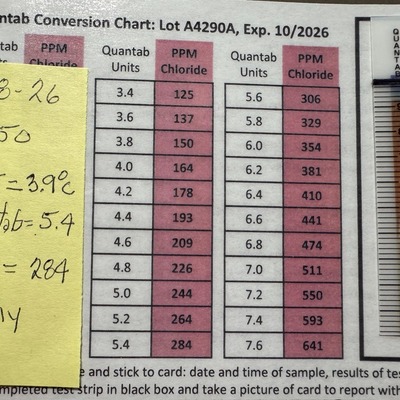 ntab Conversion Chart: Lot A4290A, Exp. 10/2026
ntab PPM
Quantab Units PPM Chloride
3.4 125
3.6 137
3.8 150
4.0 164
4.2 178
4.4 193
4.6 209
4.8 226
5.0 244
5.2 264
5.4 284
Quantab Units PPM Chloride
5.6 306
5.8 329
6.0 354
6.2 381
6.4 410
6.6 441
6.8 474
7.0 511
7.2 550
7.4 593
7.6 641
-26
50
= 3.9°C
tab = 5.4
= 284
QUANTAB
e and stick to card: date and time of sample, results of tes
mpleted test strip in black box and take a picture of card to report with